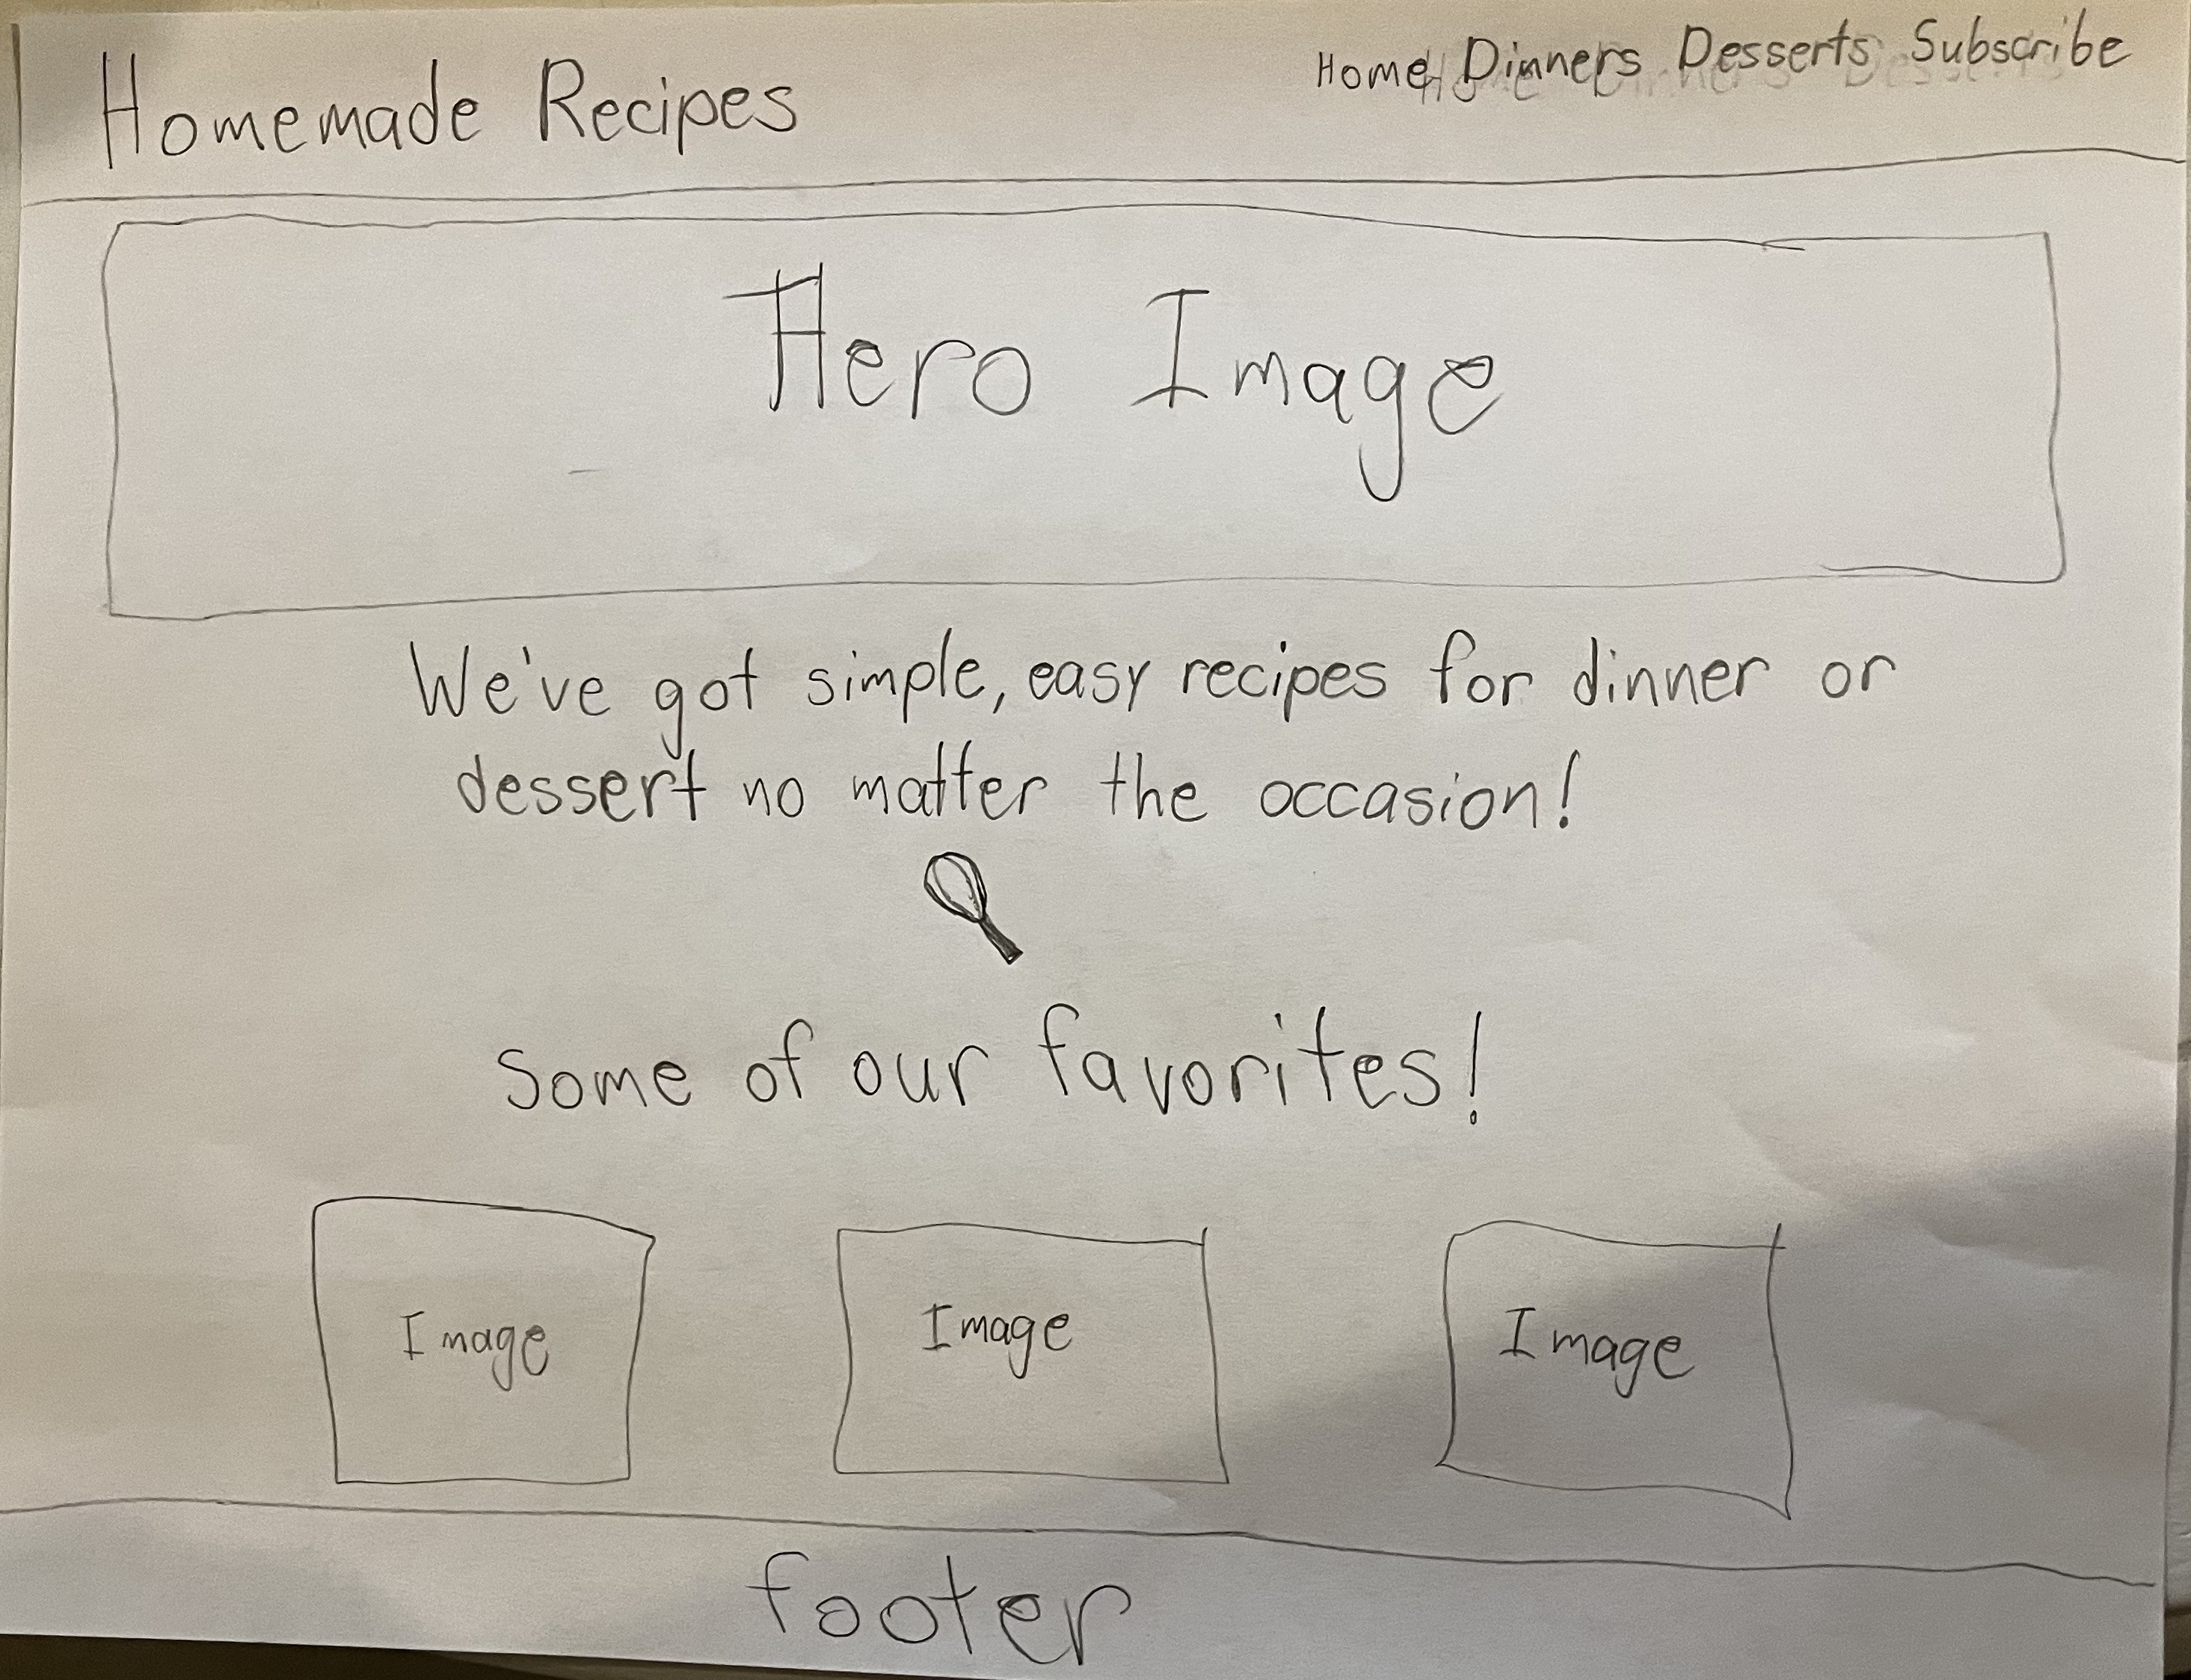 Homemade Recipes
Home Dinners Desserts Subscribe
Hero Image
We've got simple, easy recipes for dinner or
dessert no matter the occasion!
Some of our favorites!
Image
Image
Image
footer